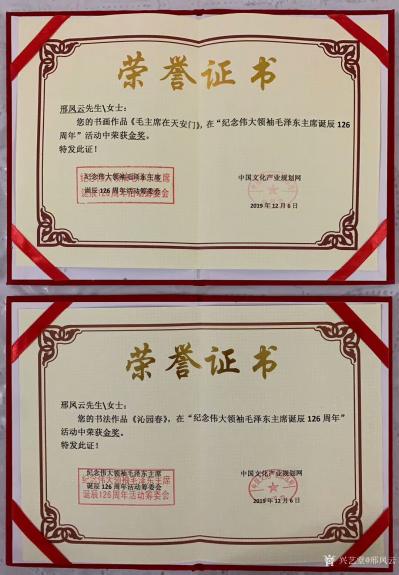 荣誉证书
邢风云先生\女士:
您的书画作品《毛主席在天安门》,在“纪念伟大领袖毛泽东主席诞辰126
周年”活动中荣获金奖。
特发此证!
纪念伟大领袖毛泽东主席
诞辰126周年活动筹委会
纪念伟大领袖毛泽东主席
诞辰126周年活动筹委会
中国文化产业规划网
2019年12月6日
荣誉证书
邢风云先生\女士:
您的书法作品《沁园春》,在“纪念伟大领袖毛泽东主席诞辰126周年”
活动中荣获金奖。
特发此证!
纪念伟大领袖毛泽东主席
诞辰126周年活动筹委会
纪念伟大领袖毛泽东主席
诞辰126周年活动筹委会
中国文化产业规划网
2019年12月6日
兴艺堂@邢风云